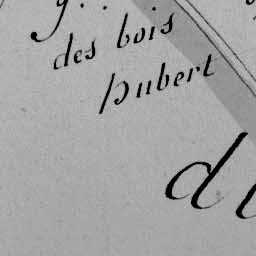 des bois
pubert
d